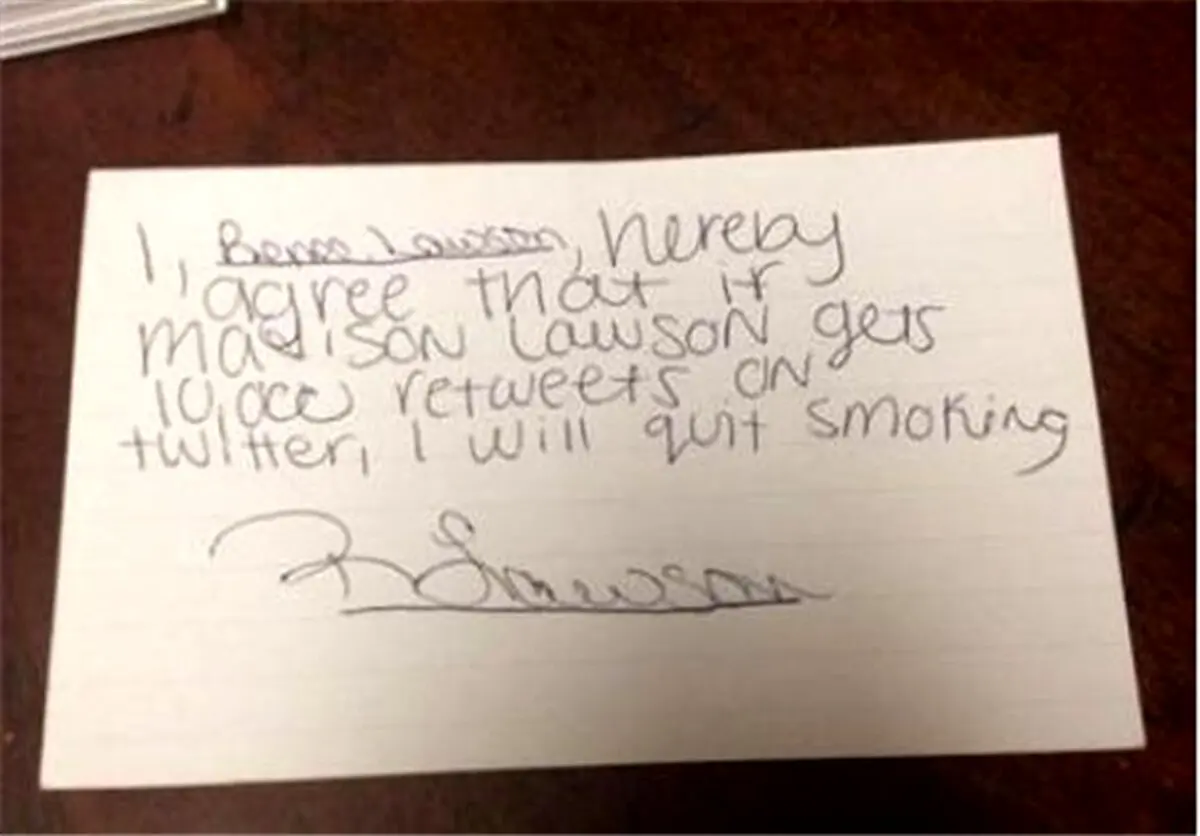 I, Lawson, hereby
agree that if
madison Lawson gets
10,000 retweets on
twitter, I will quit smoking
Lawson